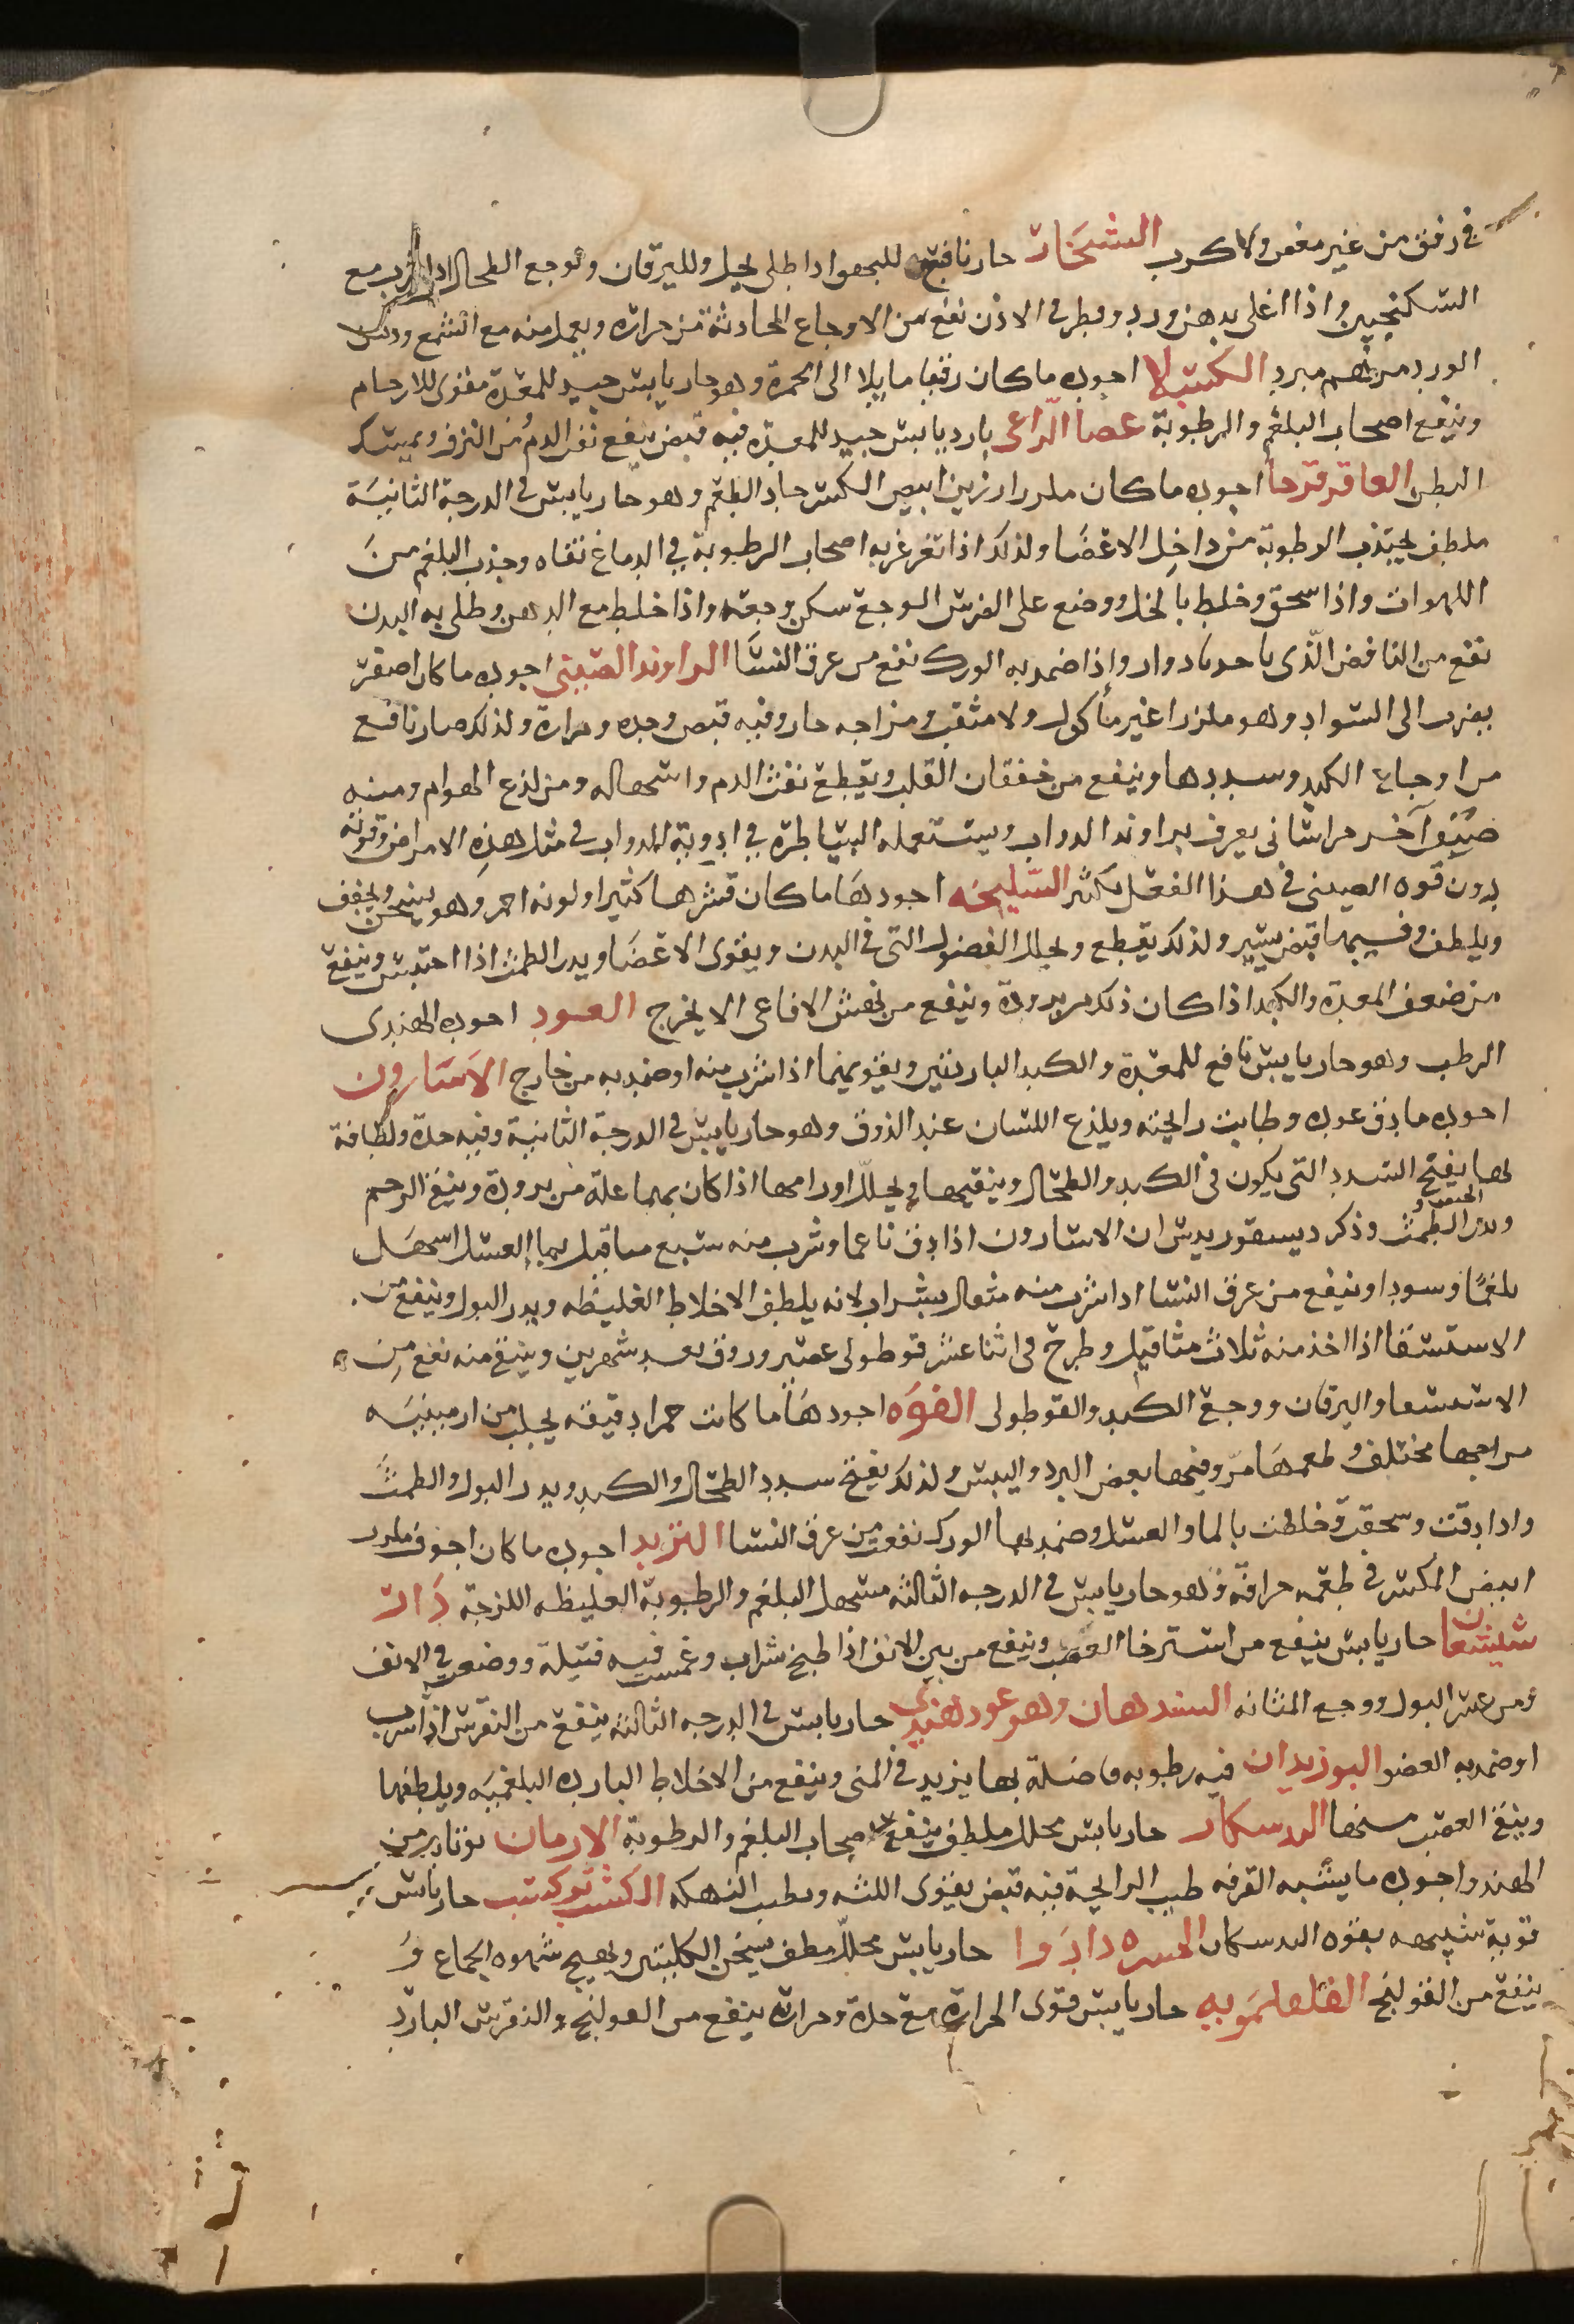 في رفق من غير مغص ولا كرب الشيخار حار نافع للبهق اذا طلي بخل ولليرقان ولوجع الطحال اذا شرب مع
السكنجبين واذا اغلي بدهن ورد وقطر في الاذن نفع من الاوجاع الحادثة من حرارة ويعمل منه مع الشمع ودهن
الورد مرهم مبرد الكبيلا اجوده ما كان رقيقا مايلا الى الحمرة وهو حار يابس جيد للمعدة مقوى للارحام
وينفع اصحاب البلغم والرطوبة عصا الراعي بارد يابس جيد للمعدة فيه قبض ينفع نفث الدم من النزف ويمسك
البطن العاقر قرحا اجوده ما كان ملززا رزين ابيض المكسر حاد الطعم وهو حار يابس في الدرجة الثانية
ملطف يجتذب الرطوبة من داخل الاعضا ولذلك اذا تغرغر به اصحاب الرطوبة في الدماغ نقاه وجذب البلغم من
اللهوات واذا سحق وخلط بالخل ووضع على الضرس الوجع سكن وجعه واذا خلط مع الدهن وطلي به البدن
نفع من النافض الذي ياخد بادوار واذا ضمد به الورك نفع من عرق النسا الراوند الصيني اجوده ما كان اصفر
يضرب الى السواد وهو ملززا غير مأكول ولا مثقب ومزاجه حار وفيه قبض وحده ومرارة ولذلك صار نافع
من اوجاع الكبد وسددها وينفع من خفقان القلب ويقطع نفث الدم واسهاله ومن لذع الهوام ومنه
صنفا آخر خراساني يعرف براوند الدواب ويستعمله البياطرة في ادوية الدواب في مثل هذه الامراض وقوته
بدون قوه الصيني في هذا الفعل بكثير السليخه اجودها ما كان قشرها كثيرا ولونه احمر وهو يسخن ويجفف
ويلطف وفيها قبض يسير ولذلك يقطع ويحلل الفضول التي في البدن ويقوى الاعضا ويدر الطمث اذا احتبس وينفع
من ضعف المعدة والكبد اذا كان ذلك من برودة وينفع من نهش الافاعي الا يخرج العود اجوده الهندي
الرطب وهو حار يابس نافع للمعدة والكبد الباردتين ويقويهما اذا شرب منه او ضمد به من خارج الاسارون
اجوده ما دق عوده وطابت رايحته ويلذع اللسان عند الذوق وهو حار يابس في الدرجة الثانية وفيه حدة ولطافة
بها يفتح السدد التي يكون في الكبد والطحال وينقيها ويحلل اورامها اذا كان بهما علة من برودة وينفع الرحم
ويدر الطمث وذكر ديسقوريدس ان الاسارون اذا دق ناعما وشرب منه سبع مثاقيل بما العسل اسهل
بلغما وسودا وينفع من عرق النسا اذا شرب منه مثقال بشراب لانه يلطف الاخلاط الغليظه ويدر البول وينفع من
الاستسقا اذا اخذ منه ثلاث مثاقيل وطرح في اثنا عشر قوطولى عصير وروق بعد شهرين وينفع منه نفع من
الاستسقا واليرقان ووجع الكبد والقوطولى الفوه اجودها ما كانت حمرا دقيقه يجلب من ارمينيه
مزاجها مختلف وطعمها مر وفيها بعض البرد واليبس ولذلك يفتح سدد الطحال والكبد ويدر البول والطمث
واذا دقت وسحقت وخلطت بالما والعسل وضمد بها الورك نفعت من عرق النسا التربد اجوده ما كان اجوف ملزز
ابيض المكسر في طعمه حرافة وهو حار يابس في الدرجه الثالثة مسهل البلغم والرطوبة الغليظه اللزجة دار
شيشعان حار يابس ينفع من استرخا العصب وينفع من بين الانف اذا طبخ شراب وغمست فيه فتيلة ووضعت في الانف
ومن عسر البول ووجع المثانه السندهان وهو عود هندي حار يابس في الدرجه الثالثة ينفع من النقرس اذا شرب
او ضمد به العضو البوزيدان فيه رطوبه فاضلة بها يزيد في المنى وينفع من الاخلاط البارده البلغميه ويلطفها
وينفع العصب مسخها حار يابس محلل ملطف ينفع اصحاب البلغم والرطوبة الارمان نوتا به من
الهند واجوده ما يشبه القرفه طيب الرايحة فيه قبض يقوى اللثه ويطيب النهكه الكشت بركشت حار يابس
قوية شبيهه بقوه حار يابس محلل ملطف يسخن الكليتين ويهيج شهوه الجماع و
ينفع من القولنج الفلفلمويه حار يابس قوى الحرارة مع حدة وحرارة ينفع من القولنج والنقرس البارد